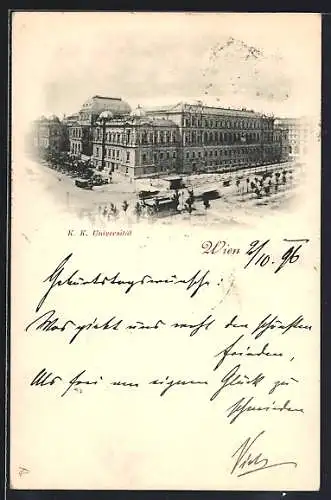 K. K. Universität
Wien 2/10. 96
Geburtstagswünsche:
Was giebt uns wohl den schönsten
Frieden,
Als frei am eignen Glück zu
schmieden